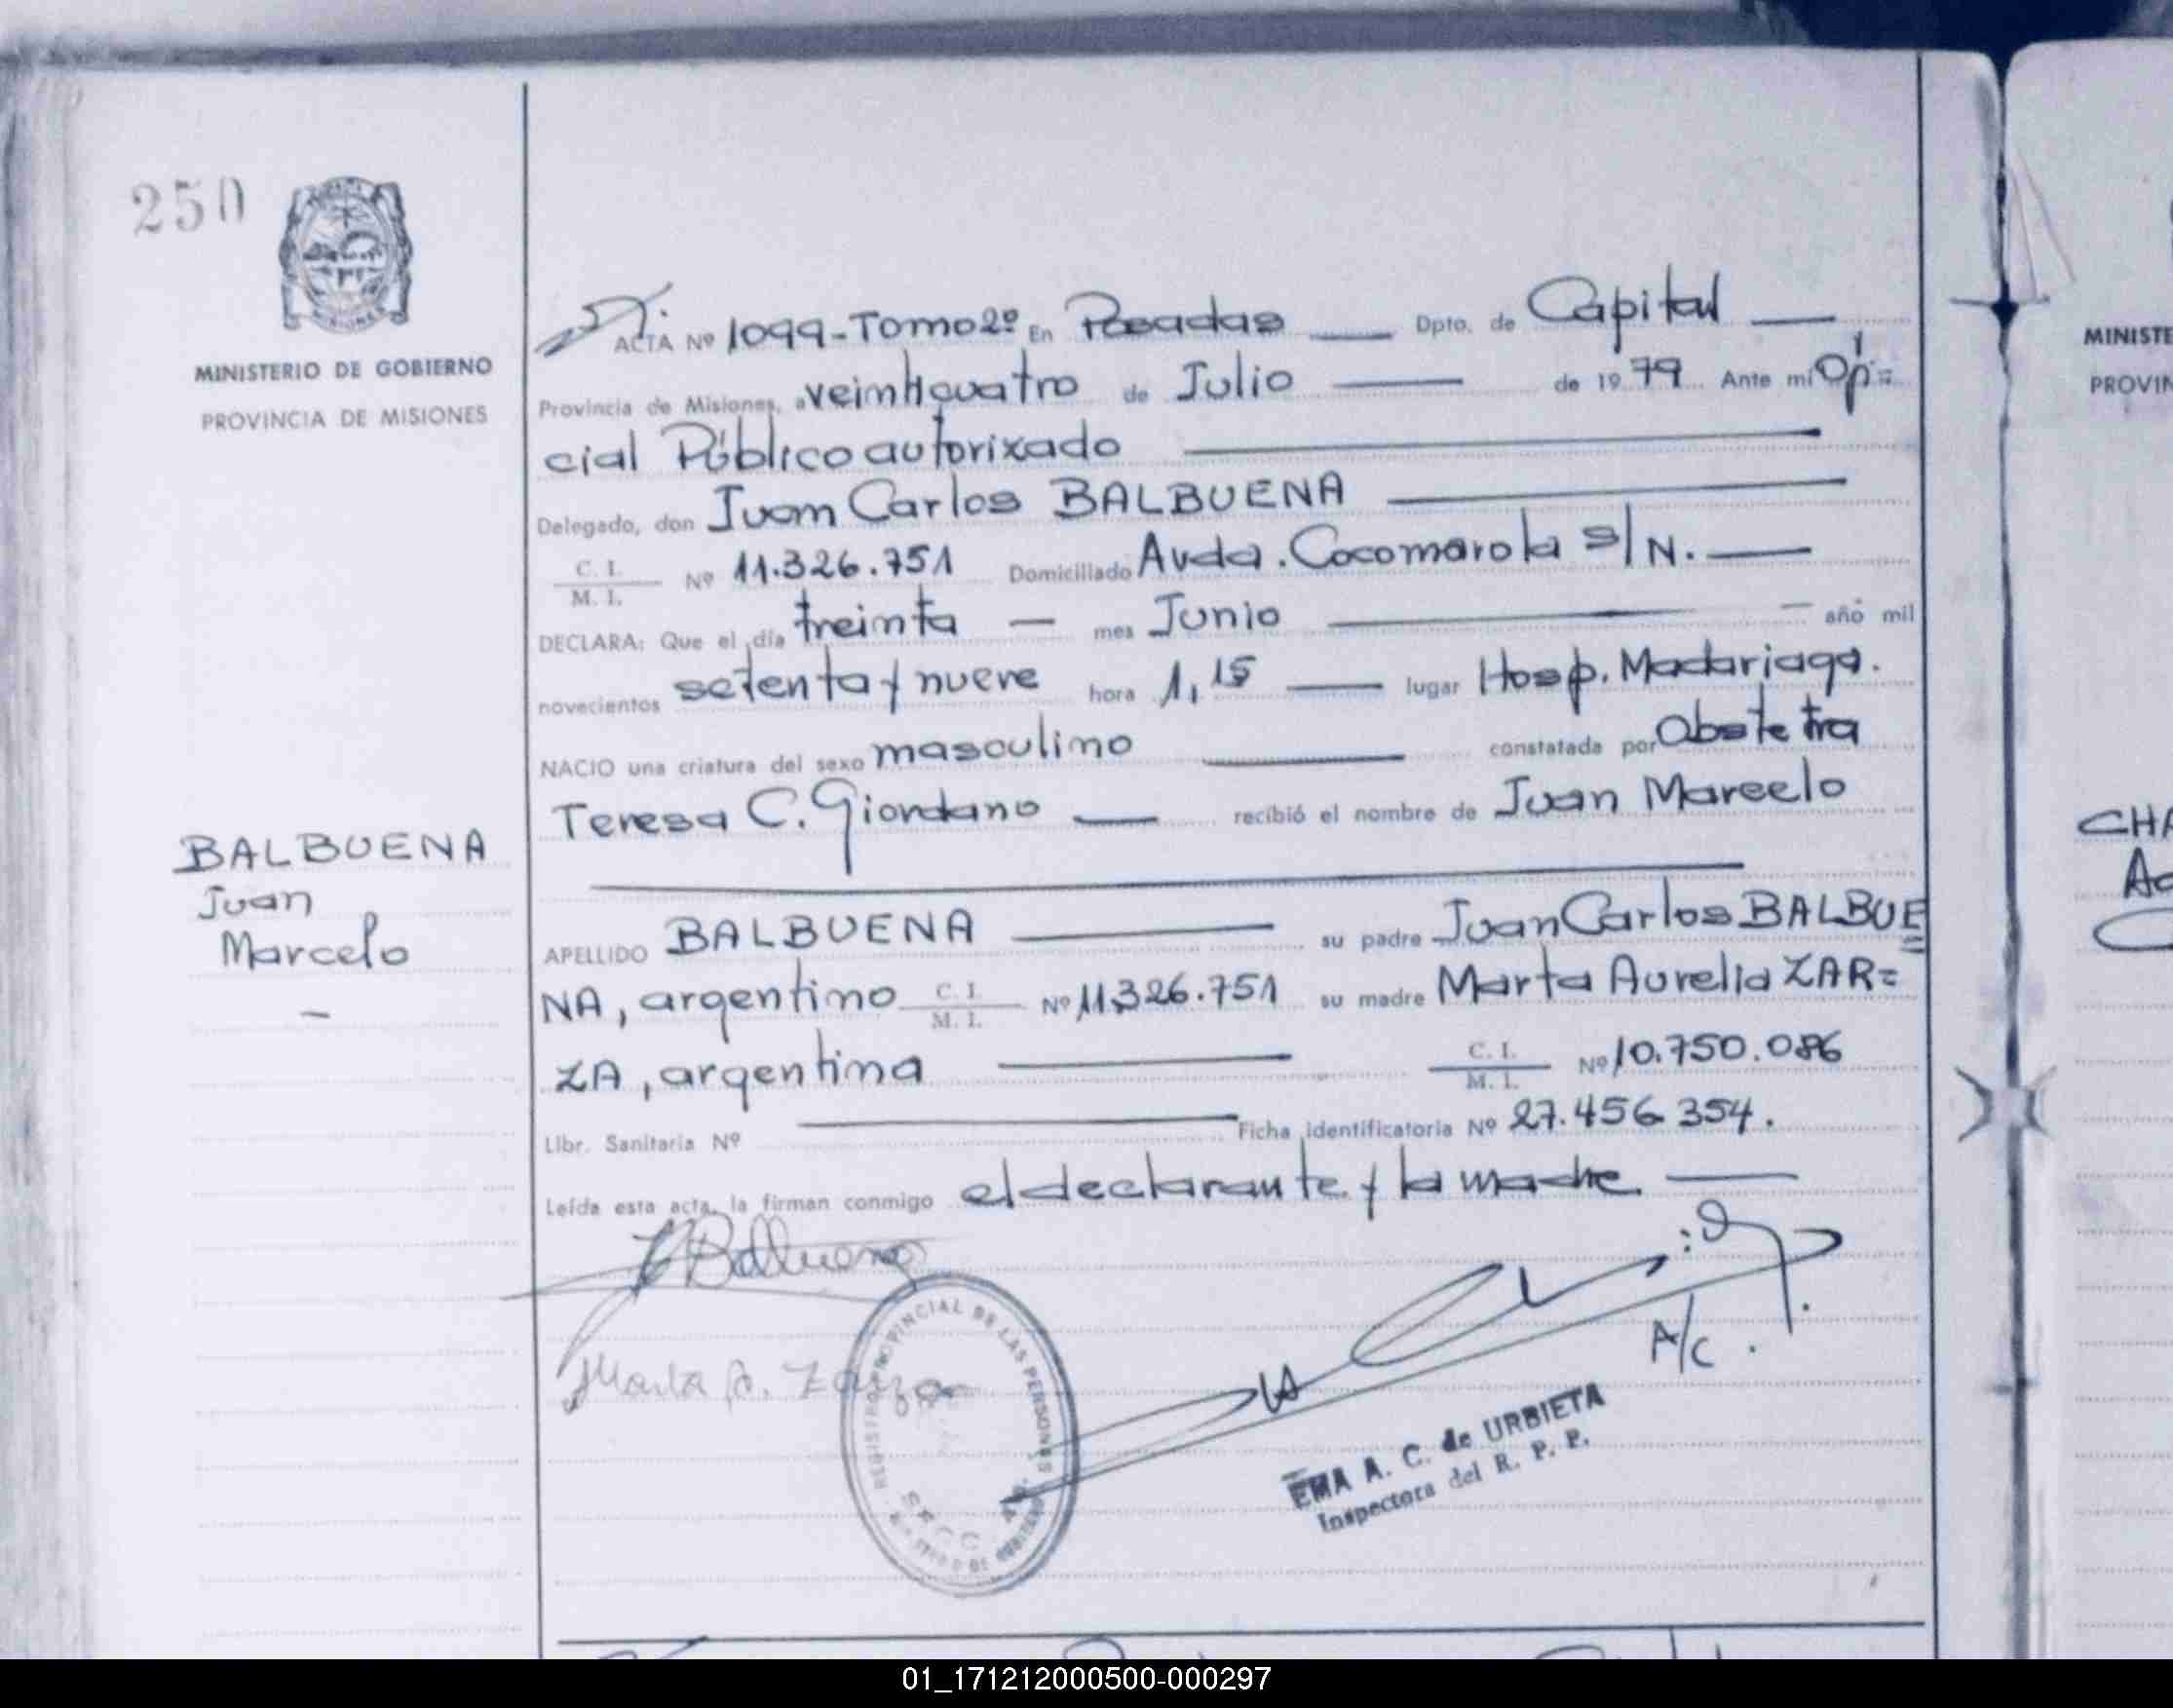 250
MINISTERIO DE GOBIERNO
PROVINCIA DE MISIONES
BALBUENA
Juan
Marcelo
ACTA Nº 1099-Tomo 2º En Posadas Dpto. de Capital
Provincia de Misiones, a veinticuatro de Julio de 1979 Ante mí Ofi=
cial Público autorizado
Delegado, don Juan Carlos BALBUENA
C. I.
M. I. Nº 11.326.751 Domiciliado Avda. Cocomarola s/N.
DECLARA: Que el día treinta mes Junio año mil
novecientos setenta y nueve hora 1,15 lugar Hosp. Madariaga.
NACIO una criatura del sexo masculino constatada por Obstetra
Teresa C. Giordano recibió el nombre de Juan Marcelo
APELLIDO BALBUENA su padre Juan Carlos BALBUE=
NA, argentino C. I. M. I. Nº 11.326.751 su madre Marta Aurelia ZAR=
ZA, argentina C. I. M. I. Nº 10.750.086
Libr. Sanitaria Nº Ficha identificatoria Nº 27.456.354.
Leída esta acta, la firman conmigo el declarante y la madre.
Balbuena
Marta A. Zarza
REGISTRO PROVINCIAL DE LAS PERSONAS
A/C.
EMA A. C. de URBIETA
Inspectora del R. P. P.
MINISTE
PROVIN
CHA
01_171212000500-000297